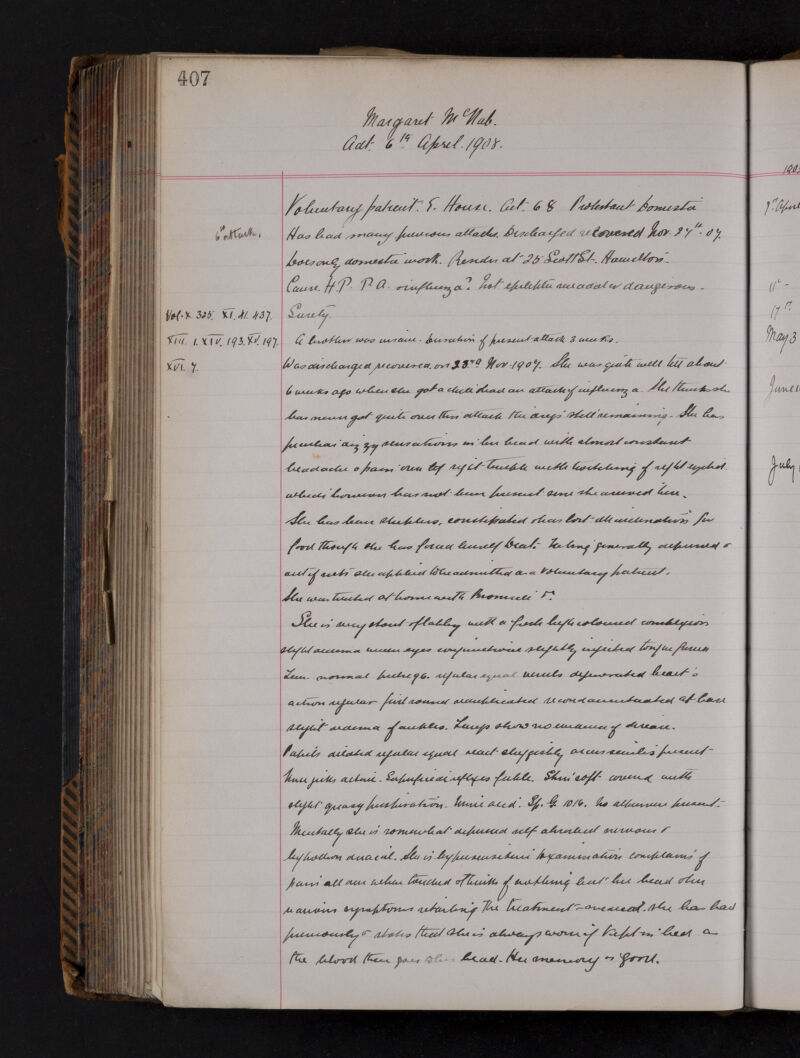 407
Margaret McNab.
Adt. 6th April. 1908.
Voluntary patient. E. House. Aet. 68 Protestant Domestic
6th attack.
Has had many previous attacks. Discharged recovered Nov. 27th. 07.
Does only domestic work. Resides at 25 Scott St. Hamilton.
Cause H.P. P.A. influenza? Not epileptic suicidal or dangerous.
Vol. X. 325. XI. 41. 437.
Surety.
XIII. 1. XIV. 193. XV. 197.
A brother was insane. Duration of present attack 3 weeks.
XVI. 7.
Was discharged recovered on 23rd Nov 1907. She was quite well till about
6 weeks ago when she got a chill & had an attack of influenza. She thinks she
has never got quite over this attack the dregs still remaining. She has
peculiar dizzy sensations in her head with almost constant
headache & pain over left right temple with twitching of right eyelid
which however has not been present since she arrived here.
She has been sleepless, constipated & has lost all inclination for
food though she has forced herself to eat. Feeling generally depressed &
out of sorts she applied to be admitted as a voluntary patient.
She was treated at home with Bromide
She is very stout & flabby with a fresh high coloured complexion
slight oedema under eyes conjunctivae slightly injected tongue
Tem. normal pulse 96. regular equal vessels degenerated heart's
action regular first sound reduplicated second accentuated at base
slight oedema of ankles. Lungs show no evidence of disease.
Pupils dilated regular equal react sluggishly arcus senilis present
Knee jerks active. Superficial reflexes feeble. Skin soft covered with
slight greasy perspiration. Urine acid. Sp. G. 1016. No albumen present.
Mentally she is somewhat depressed self absorbed nervous &
hypochondriacal. She is hypersensitive to examination complains of
pain all over when touched & thinks of nothing but her head & her
various symptoms retailing the treatment she has had
previously & states that she is always worse if kept in bed as
the blood then goes to her head. Her memory is good.
190
7th April
11th
17th
May 3
June
July